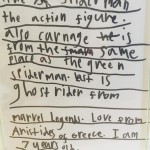 the of spiderman
the action figure.
also carnage he is
from the same
place as the green
spiderman. last is
ghost rider from
marvel legends. Love from
Aristides of Greece I am
7 years old.